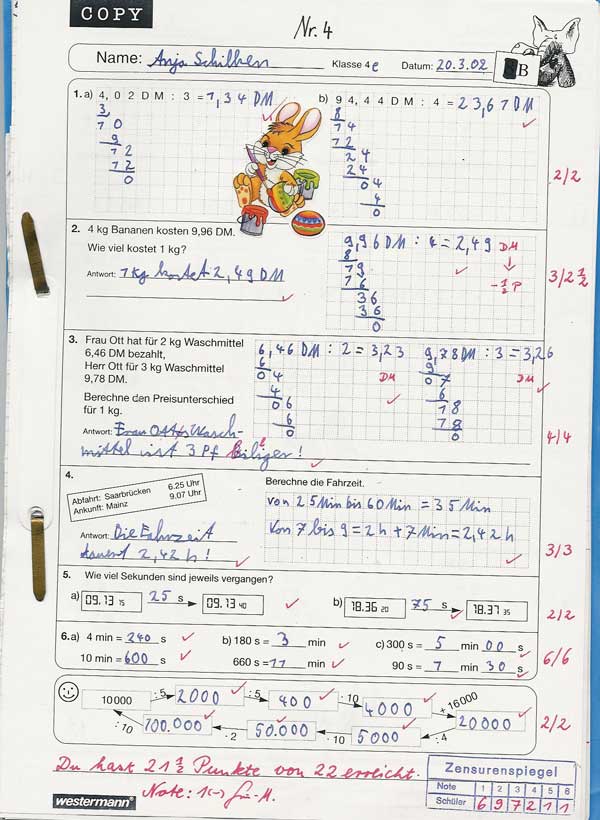 COPY
Nr. 4
Name: Anja Schilken Klasse 4e Datum: 20.3.02
B
1. a) 4,02 DM : 3 = 1,34 DM
3
10
9
12
12
0
b) 94,44 DM : 4 = 23,61 DM
8
14
12
24
24
04
4
0
2/2
2. 4 kg Bananen kosten 9,96 DM.
Wie viel kostet 1 kg?
Antwort: 1 kg kostet 2,49 DM
9,96 DM : 4 = 2,49 DM
8
19
16
36
36
0
-½ P
3/2½
3. Frau Ott hat für 2 kg Waschmittel
6,46 DM bezahlt,
Herr Ott für 3 kg Waschmittel
9,78 DM.
Berechne den Preisunterschied
für 1 kg.
Antwort: Frau Ottos Wasch-
mittel ist 3 Pf billiger!
6,46 DM : 2 = 3,23
DM
6
04
4
06
6
0
9,78 DM : 3 = 3,26
DM
9
07
6
18
18
0
4/4
4.
Abfahrt: Saarbrücken 6.25 Uhr
Ankunft: Mainz 9.07 Uhr
Antwort: Die Fahrzeit
dauert 2,42 h!
Berechne die Fahrzeit.
von 25 Min bis 60 Min = 35 Min
Von 7 bis 9 = 2 h + 7 Min = 2,42 h
3/3
5. Wie viel Sekunden sind jeweils vergangen?
a) 09.13 15 25 s 09.13 40
b) 18.36 20 75 s 18.37 35
2/2
6. a) 4 min = 240 s b) 180 s = 3 min c) 300 s = 5 min 00 s
10 min = 600 s 660 s = 11 min 90 s = 1 min 30 s
6/6
10000 : 5 2000 : 5 400 · 10 4000 + 16000
: 10 100.000 · 2 50.000 · 10 5000 : 4 20000
2/2
Du hast 21 ½ Punkte von 22 erreicht.
Note: 1(-)
westermann
Zensurenspiegel
Note 1 2 3 4 5 6
Schüler 6 9 7 2 1 1